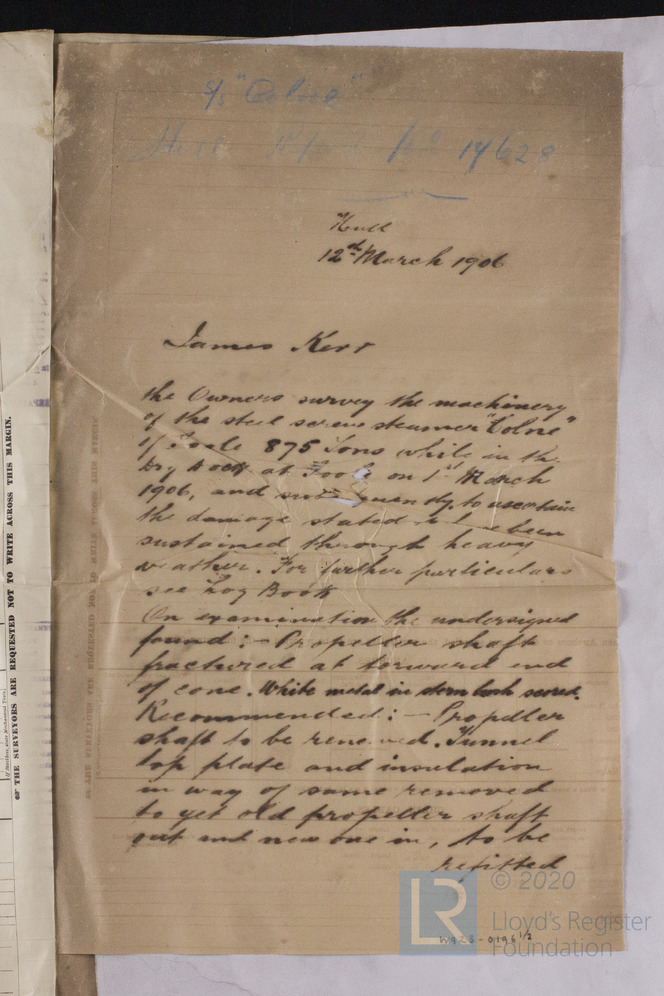 S/S "Colne"
Hull Report No 17628
Hull
12th March 1906
James Kerr
the Owners survey the machinery
of the steel screw steamer "Colne"
of Goole 875 Tons while in the
Dry Dock at Goole on 1st March
1906, and subsequently, to ascertain
the damage stated to have been
sustained through heavy
weather. For further particulars
see Log Book
On examination the undersigned
found:- Propeller shaft
fractured at forward end
of cone. White metal in stern bush scored.
Recommended:- Propeller
shaft to be renewed. Tunnel
top plate and insulation
in way of same removed
to get old propeller shaft
out and new one in, to be
refitted
THE SURVEYORS ARE REQUESTED NOT TO WRITE ACROSS THIS MARGIN.
W923-0196 1/2
LR
© 2020
Lloyd's Register
Foundation